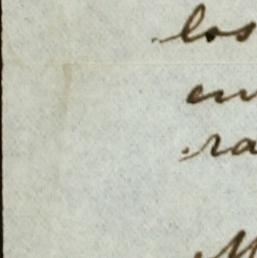 los
en
ra
M